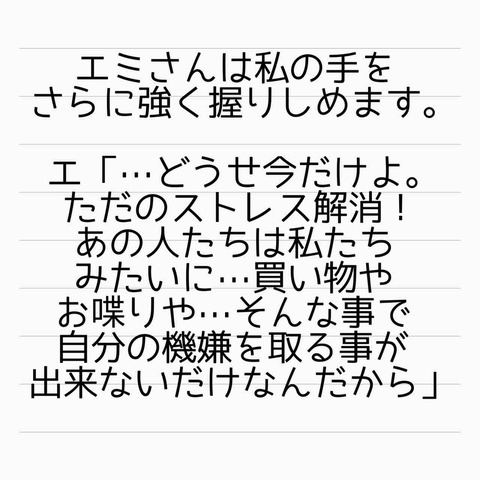 エミさんは私の手を
さらに強く握りしめます。
エ「…どうせ今だけよ。
ただのストレス解消！
あの人たちは私たち
みたいに…買い物や
お喋りや…そんな事で
自分の機嫌を取る事が
出来ないだけなんだから」